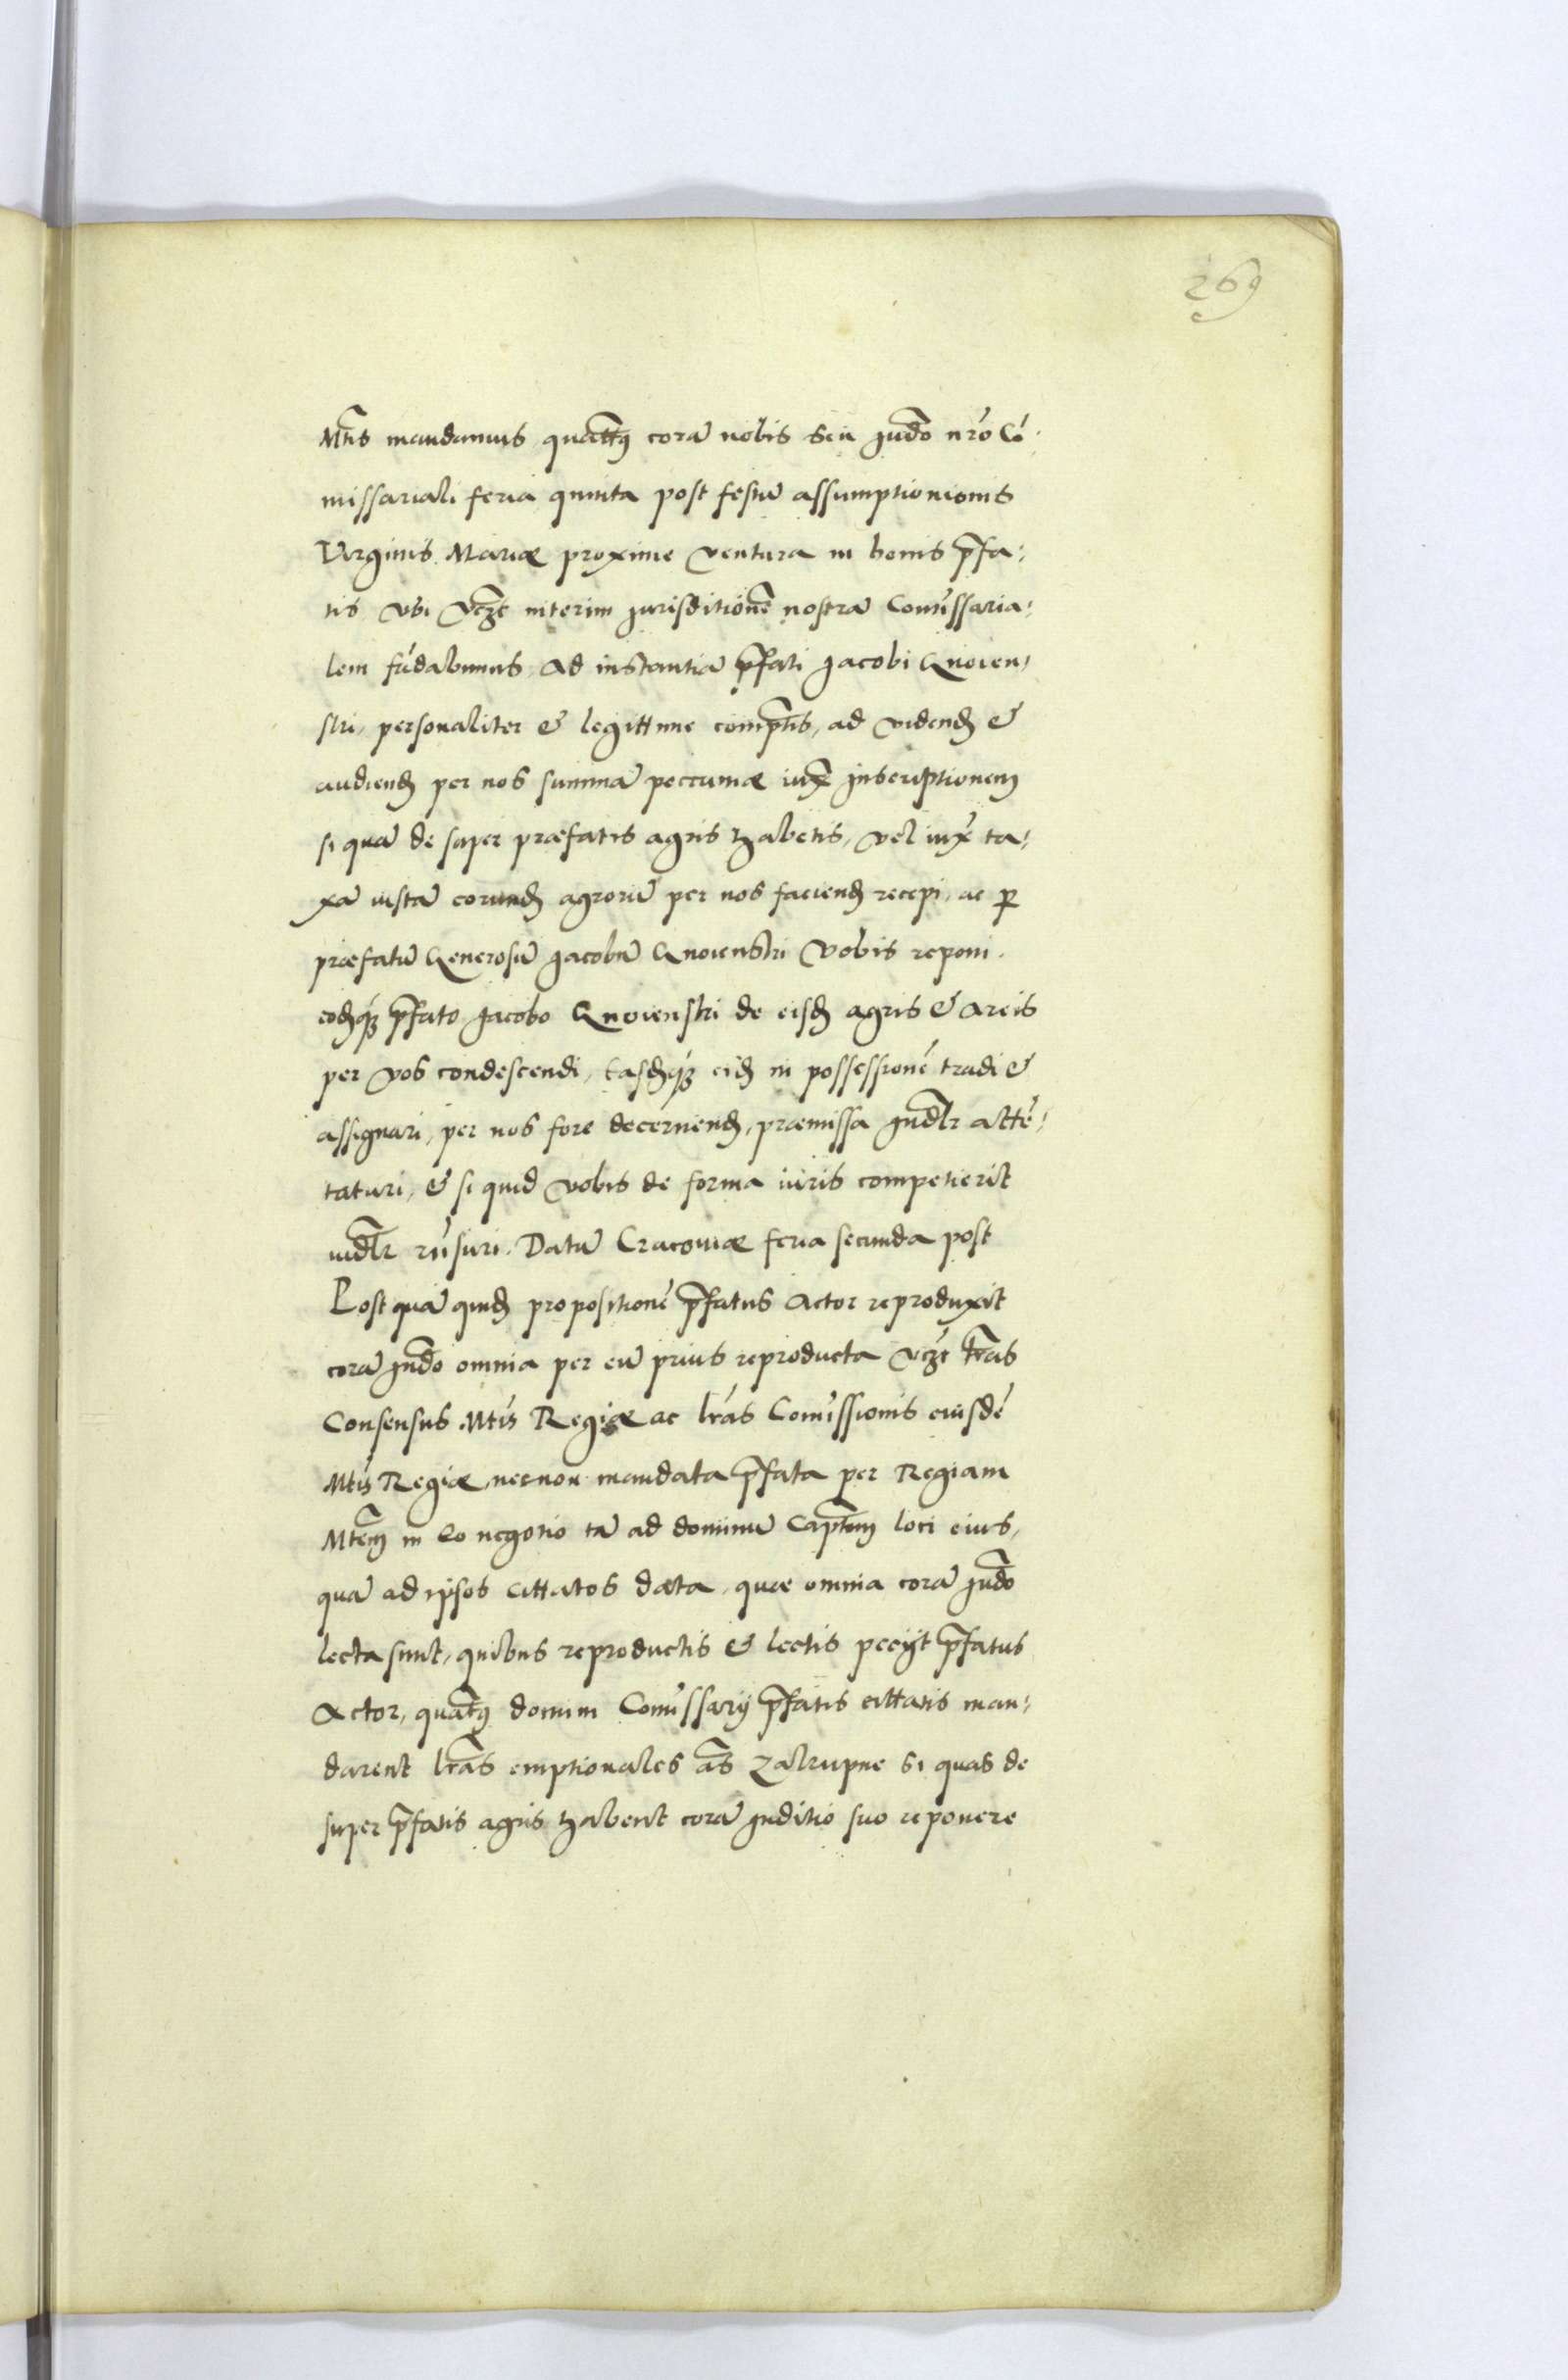 269
Mtis mandamus quattus corā nobis seu Judo nro Cō-
missariali feria quinta post festū assumptionionis
Virginis Mariæ proxime ventura in bonis pfa-
tis vbi vczt interim jurisditionē nostrā Comissaria-
lem fūdabimus, Ad instantiā pfati Jacobi Gnoien-
ski, personaliter & legittime comptis, ad videnđ &
audienđ per nos summā peccuniæ iuxᵃ Inscriptionem
si quā de super præfatis agris habetis, vel iuxᵃ ta-
xā iustā eorundē agrorū per nos faciendē recepi, ac p
præfatū Generosū Jacobū Gnoienski Vobis reponi.
eodēqʒ pfato Jacobo Gnoienski de eisdē agris & Areis
per vos condescendi, Easdēqʒ eidē in possessionē tradi &
assignari, per nos fore decernendē, præmissa Judlr attē-
taturi, & si quid vobis de forma iuris competierit
iudlr rūsuri. Datū Cracouiæ feria secunda post
Post quā quidē propositionē pfatus Actor reproduxit
corā Judo omnia per eū prius reproducta vczt lras
Consensus Mtis Regiæ ac lras Comissionis eiusdē
Mtis Regiæ, necnon mandata pfata per Regiam
Mtem in Eo negotio tā ad dominū Captem loci eius,
quā ad ipsos cittatos data, quæ omnia corā Judo
lecta sunt, quibus reproductis & lectis peciit pfatus
Actor, quatus domini Comissarij pfatis cittatis man-
darent lras emptionales als Zakupne si quas de
super pfatis agris habent corā Juditio suo reponere